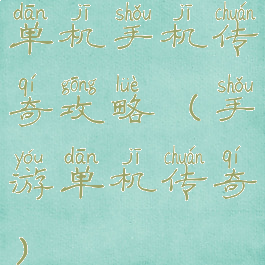 dān jī shǒu jī chuán
单机手机传
qí gōng lüè shǒu
奇攻略（手
yóu dān jī chuán qí
游单机传奇
）